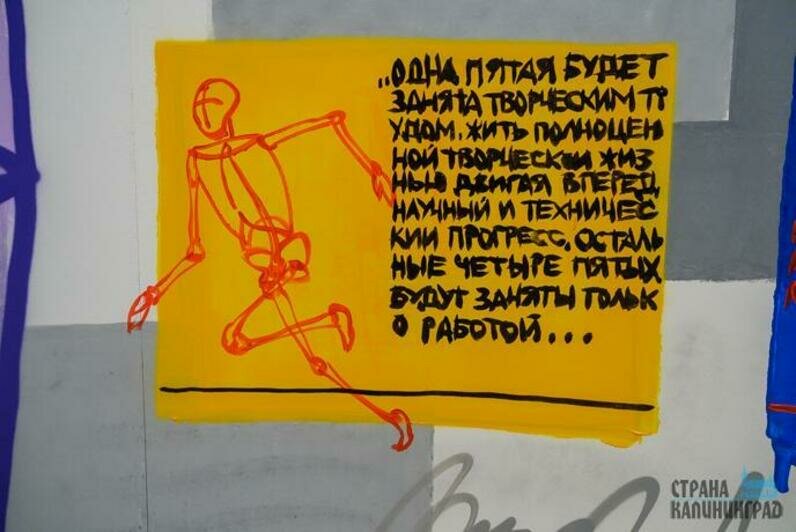 „ОДНА ПЯТАЯ БУДЕТ
ЗАНЯТА ТВОРЧЕСКИМ ТР
УДОМ. ЖИТЬ ПОЛНОЦЕН
НОЙ ТВОРЧЕСКОЙ ЖИЗ
НЬЮ ДВИГАЯ ВПЕРЕД
НАУЧНЫЙ И ТЕХНИЧЕС
КИЙ ПРОГРЕСС. ОСТАЛЬ
НЫЕ ЧЕТЫРЕ ПЯТЫХ
БУДУТ ЗАНЯТЫ ТОЛЬК
О РАБОТОЙ...
СТРАНА
КАЛИНИНГРАД